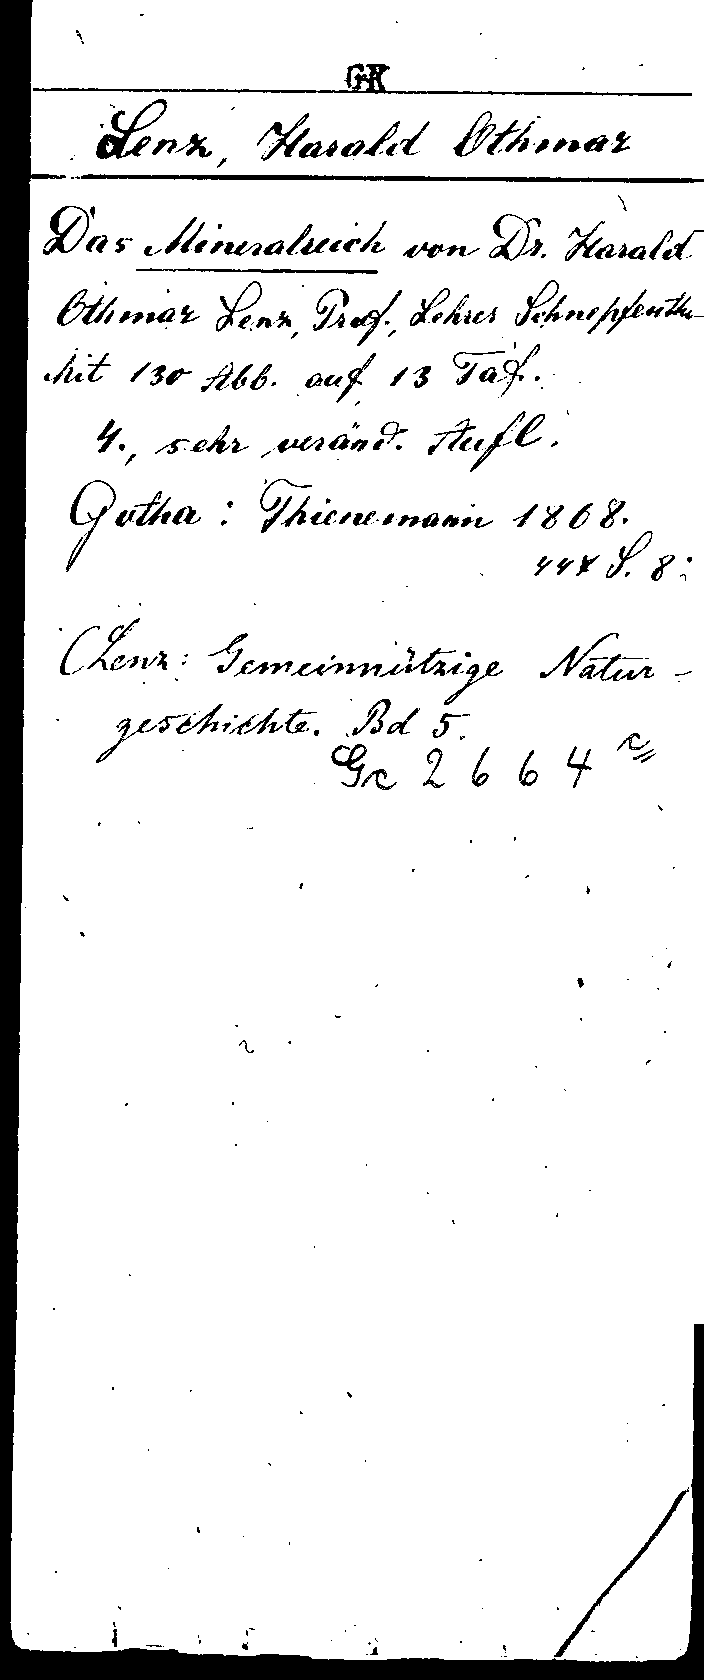 GK
Lenz, Harald Othmar
Das Mineralreich von Dr. Harald
Othmar Lenz, Prof., Lehrer Schnepfenth
Mit 130 Abb. auf 13 Taf.
4., sehr veränd. Aufl.
Gotha: Thienemann 1868.
S. 8:
(Lenz: Gemeinnützige Natur-
geschichte. Bd 5.
Gc 2664 c